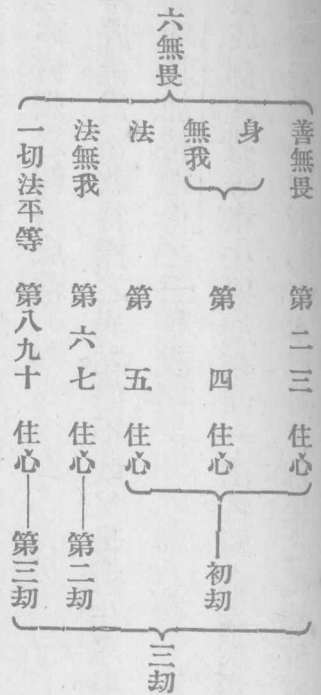 六無畏
善無畏　第二三　住心
身
無我　第四　住心
法　第五　住心
法無我　第六七　住心——第二劫
一切法平等　第八九十　住心——第三劫
初劫
三劫